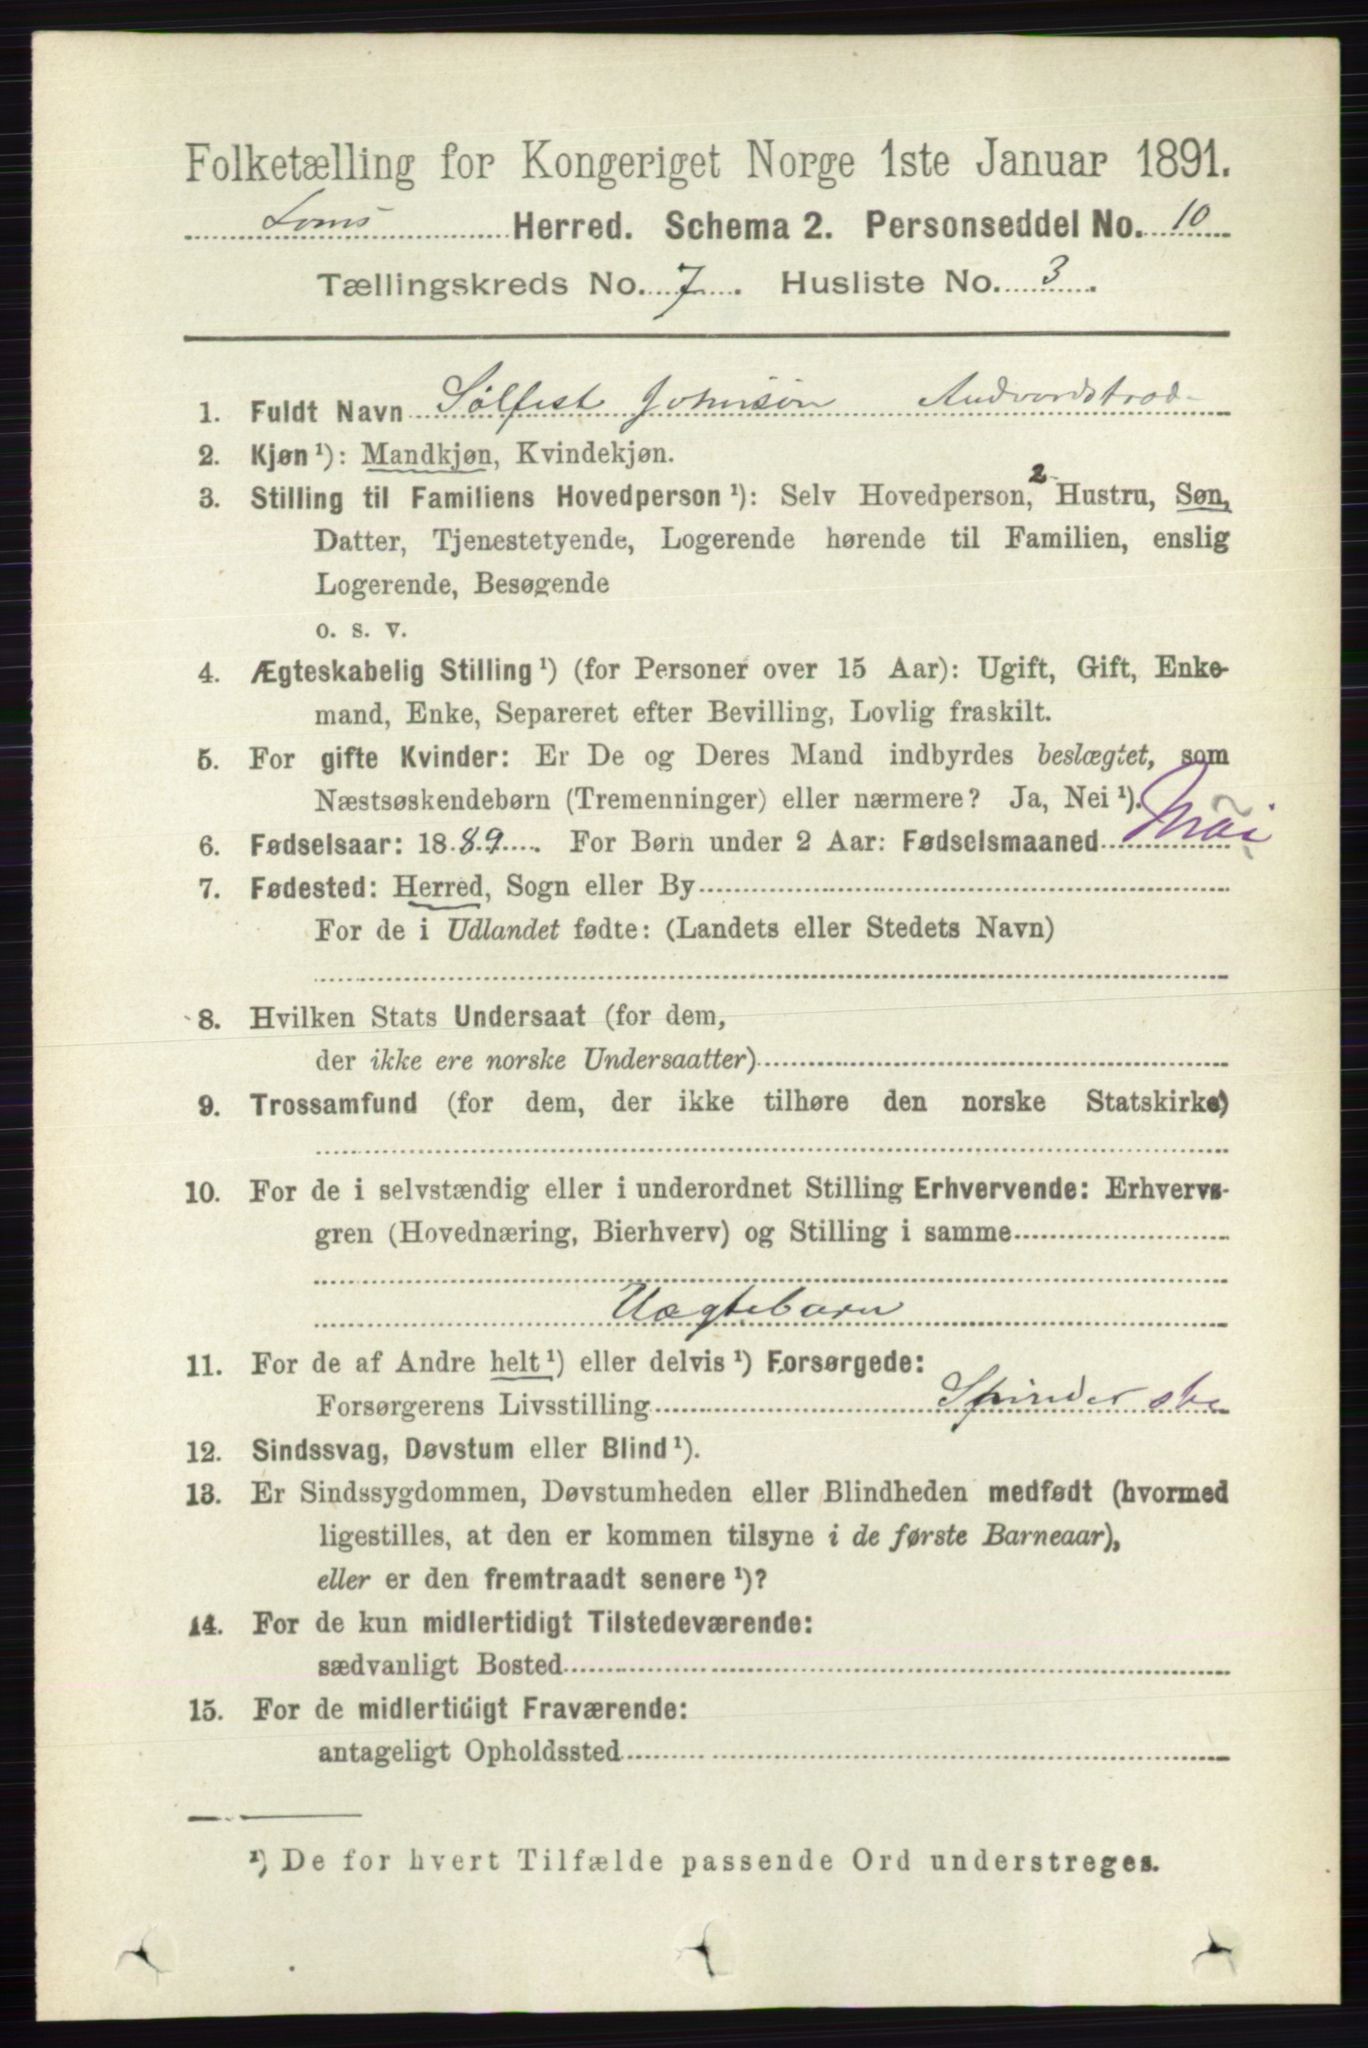 Folketælling for Kongeriget Norge 1ste Januar 1891.
Loms Herred. Schema 2. Personseddel No. 10
Tællingskreds No. 7. Husliste No. 3.
1. Fuldt Navn Sølfest Johnsøn Andvordstrød-
2. Kjøn¹): Mandkjøn, Kvindekjøn.
3. Stilling til Familiens Hovedperson¹): Selv Hovedperson, 2 Hustru, Søn,
Datter, Tjenestetyende, Logerende hørende til Familien, enslig
Logerende, Besøgende
o. s. v.
4. Ægteskabelig Stilling¹) (for Personer over 15 Aar): Ugift, Gift, Enke-
mand, Enke, Separeret efter Bevilling, Lovlig fraskilt.
5. For gifte Kvinder: Er De og Deres Mand indbyrdes beslægtet, som
Næstsøskendebørn (Tremenninger) eller nærmere? Ja, Nei¹).
6. Fødselsaar: 1889. For Børn under 2 Aar: Fødselsmaaned Mai
7. Fødested: Herred, Sogn eller By
For de i Udlandet fødte: (Landets eller Stedets Navn)
8. Hvilken Stats Undersaat (for dem,
der ikke ere norske Undersaatter)
9. Trossamfund (for dem, der ikke tilhøre den norske Statskirke)
10. For de i selvstændig eller i underordnet Stilling Erhvervende: Erhvervs-
gren (Hovednæring, Bierhverv) og Stilling i samme
Uægtebarn
11. For de af Andre helt¹) eller delvis¹) Forsørgede:
Forsørgerens Livsstilling Spinderske
12. Sindssvag, Døvstum eller Blind¹).
13. Er Sindssygdommen, Døvstumheden eller Blindheden medfødt (hvormed
ligestilles, at den er kommen tilsyne i de første Barneaar),
eller er den fremtraadt senere¹)?
14. For de kun midlertidigt Tilstedeværende:
sædvanligt Bosted
15. For de midlertidigt Fraværende:
antageligt Opholdssted
¹) De for hvert Tilfælde passende Ord understreges.